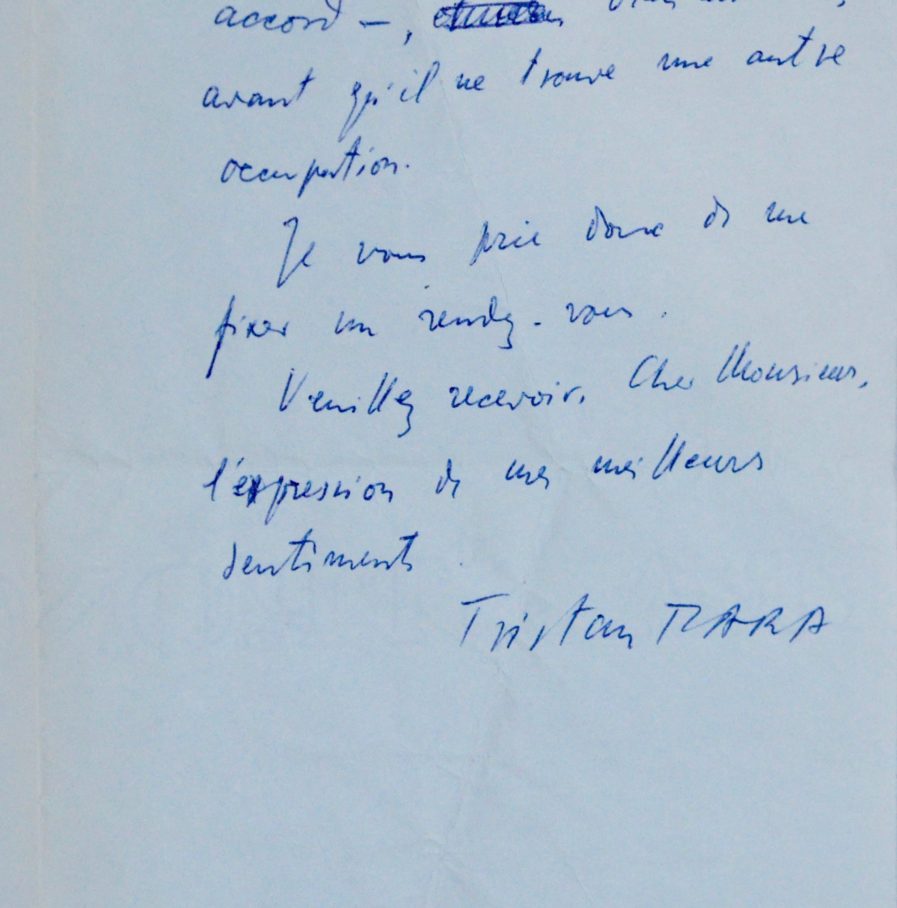 accord –,
avant qu'il ne trouve une autre
occupation.
Je vous prie donc de me
fixer un rendez-vous.
Veuillez recevoir, Cher Monsieur,
l'expression de mes meilleurs
sentiments.
Tristan TZARA